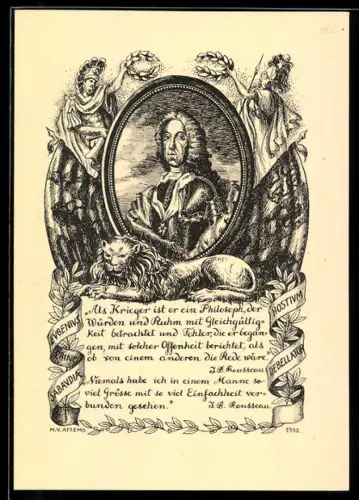 „Als Krieger ist er ein Philosoph, der
Würden und Ruhm mit Gleichgültig-
keit betrachtet und Fehler, die er began-
gen, mit solcher Offenheit berichtet, als
ob von einem anderen die Rede wäre."
J. B. Rousseau
„Niemals habe ich in einem Manne so-
viel Grösse mit so viel Einfachheit ver-
bunden gesehen."
J. B. Rousseau
EUGENIUS
PRINC.
SABAUDIAE
HOSTIUM
DEBELLATOR
M.V. ATTEMS
1932